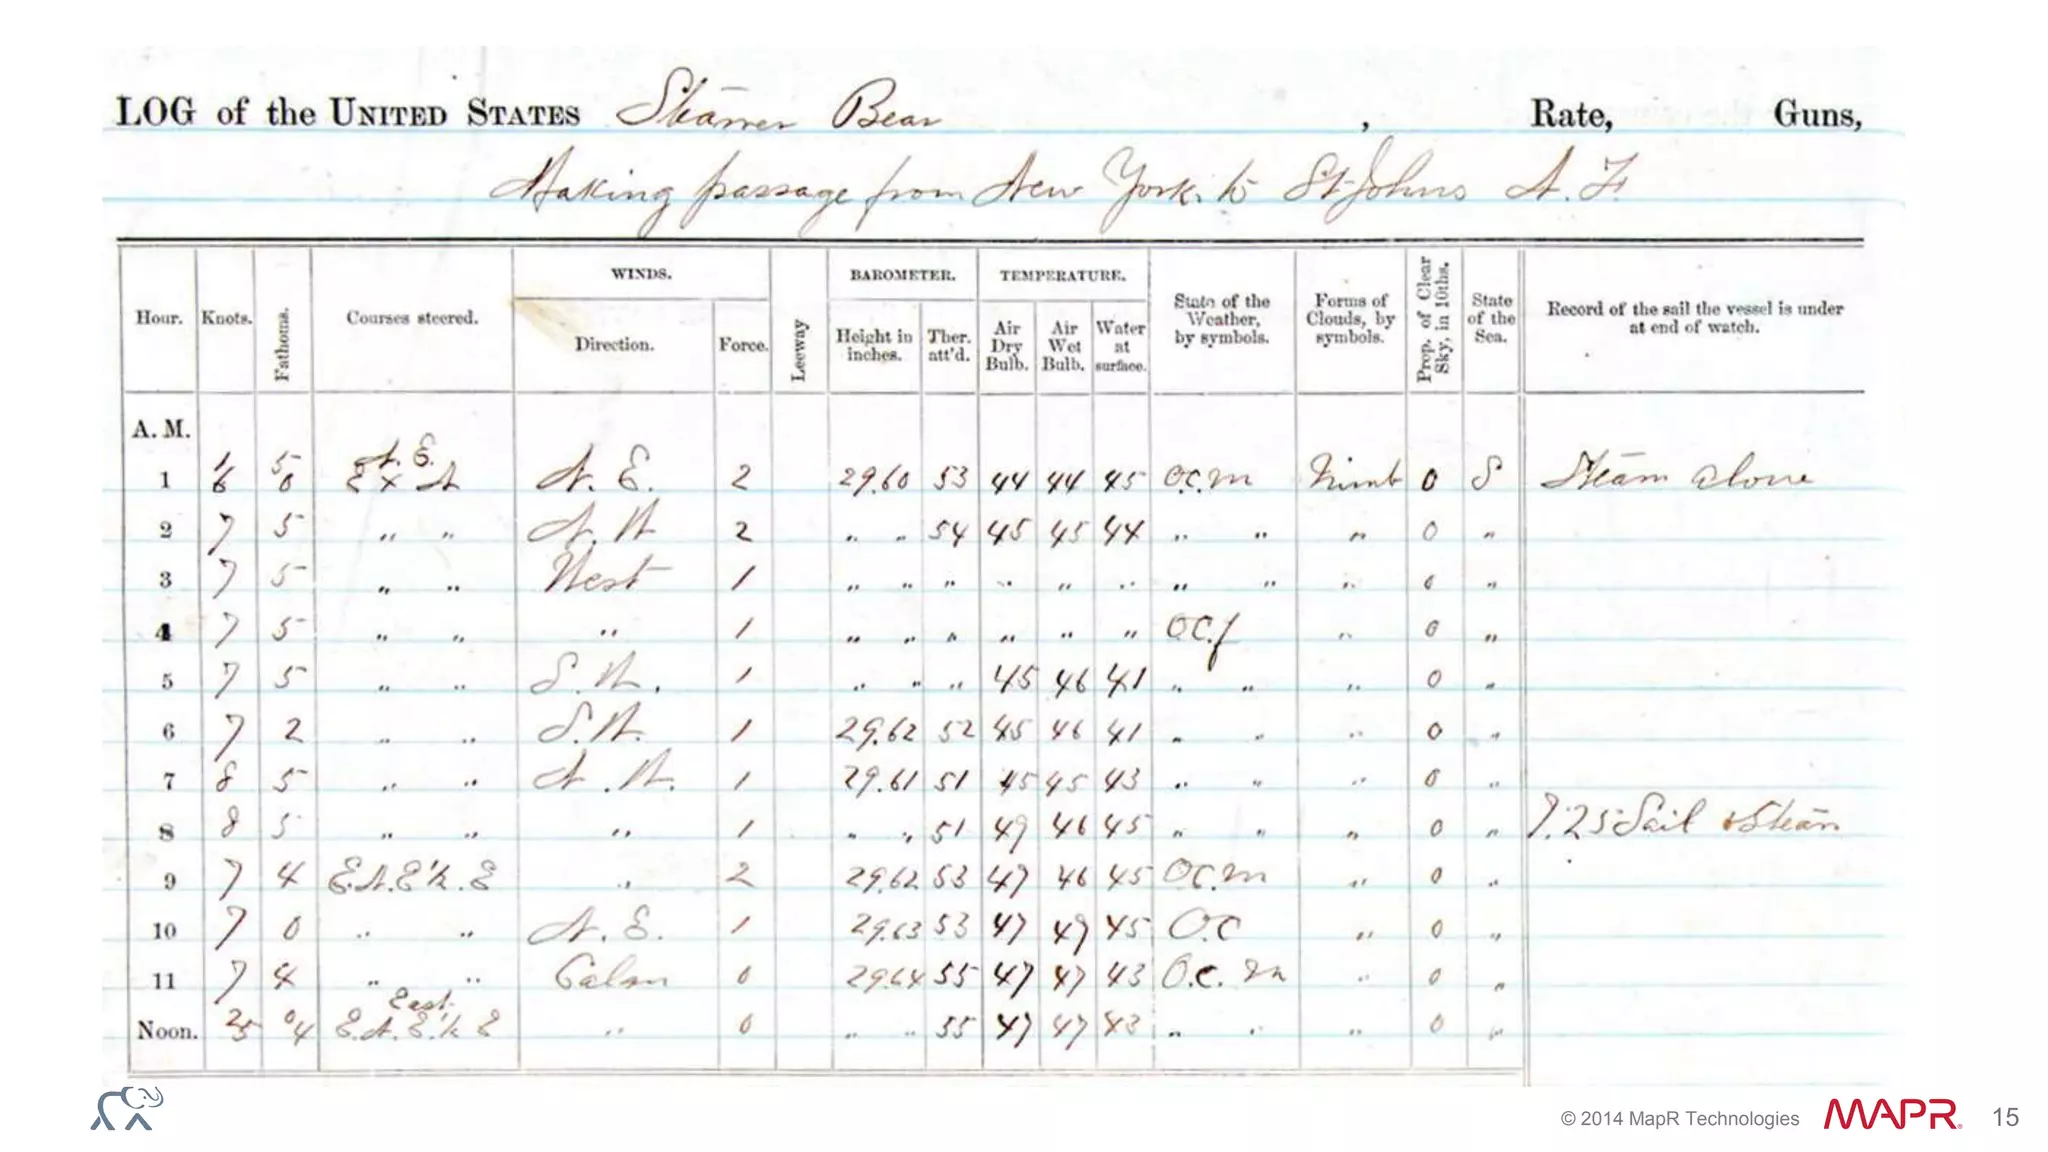 LOG of the UNITED STATES Steamer Bear , Rate, Guns,
Making passage from New York to St Johns N. F.
Hour. Knots. Fathoms. Courses steered. WINDS. Direction. Force. Leeway BAROMETER. Height in inches. Ther. att'd. TEMPERATURE. Air Dry Bulb. Air Wet Bulb. Water at surface. State of the Weather, by symbols. Forms of Clouds, by symbols. Prop. of Clear Sky, in 10ths. State of the Sea. Record of the sail the vessel is under at end of watch.
A. M.
N. E.
1 1 6 5 0 E x N N. E. 2 29.60 53 44 44 45 O.C.M Nimb 0 S Steam alone
2 7 5 " " N. W 2 " " 54 45 45 44 " " " 0 "
3 7 5 " " West 1 " " " " " " " " " 0 "
4 7 5 " " " 1 " " " " " " O.C.f " 0 "
5 7 5 " " S. W. 1 " " " 45 46 41 " " " 0 "
6 7 2 " " S. W. 1 29.62 52 45 46 41 " " " 0 "
7 8 5 " " N. W. 1 29.61 51 45 45 43 " " " 0 "
8 8 5 " " " 1 " " 51 49 46 45 " " " 0 " 7.25 Sail & Steam
9 7 4 E.N.E ½ E " 2 29.62 53 47 46 45 O.C.M " 0 "
10 7 0 " " N. E. 1 29.63 53 47 47 45 O.C " 0 "
11 7 4 " " Calm 0 29.64 55 47 47 43 O.C. M " 0 "
East
Noon. 2 5 0 4 E.N.E. ½ E " 0 " " 55 47 47 43 " " " 0 "
© 2014 MapR Technologies MAPR® 15